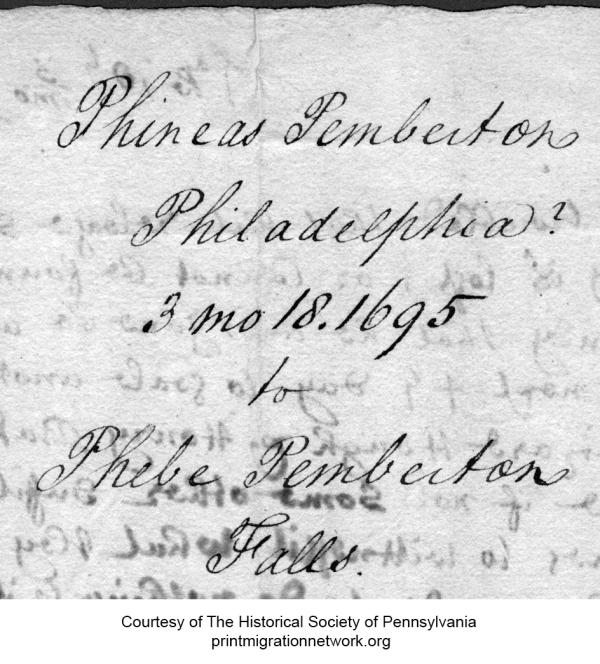 Phineas Pemberton
Philadelphia?
3 mo 18. 1695
to
Phebe Pemberton
Falls.
Courtesy of The Historical Society of Pennsylvania
printmigrationnetwork.org